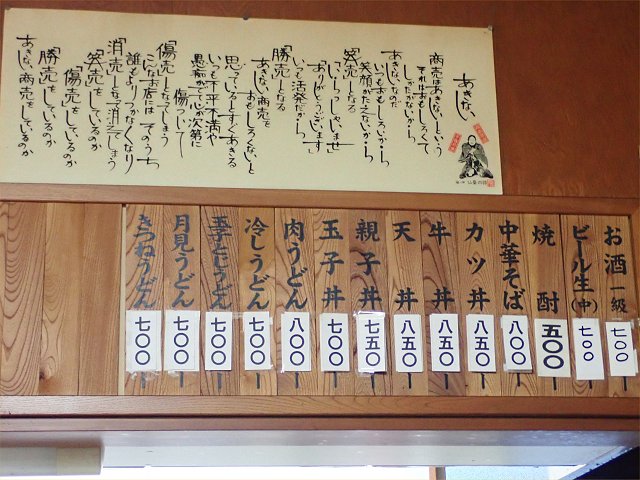 あきない
商売はあきないという
それはおもしろくて
しょうがないから
あきないなのだ
いつもおもしろいから
笑顔がたえないから
「笑売」となる
「いらっしゃいませ」
「ありがとうございます」
いつも活発だから
「勝売」となる
あきない商売を
おもしろくないと
思っているとすぐあきる
いつも不平不満や
愚痴がでて心が次第に
傷ついて
「傷売」となってしまう
こんなお店には そのうち
誰もよりつかなくなり
「消売」となって消えてしまう
「笑売」をしているのか
「傷売」をしているのか
「勝売」をしているのか
あきない商売をしているのか
お酒一級 七〇〇
ビール生(中) 七〇〇
焼酎 五〇〇
中華そば 八〇〇
カツ丼 八五〇
牛丼 八五〇
天丼 八五〇
親子丼 七五〇
玉子丼 七〇〇
肉うどん 八〇〇
冷しうどん 七〇〇
玉子とじうどん 七〇〇
月見うどん 七〇〇
きつねうどん 七〇〇